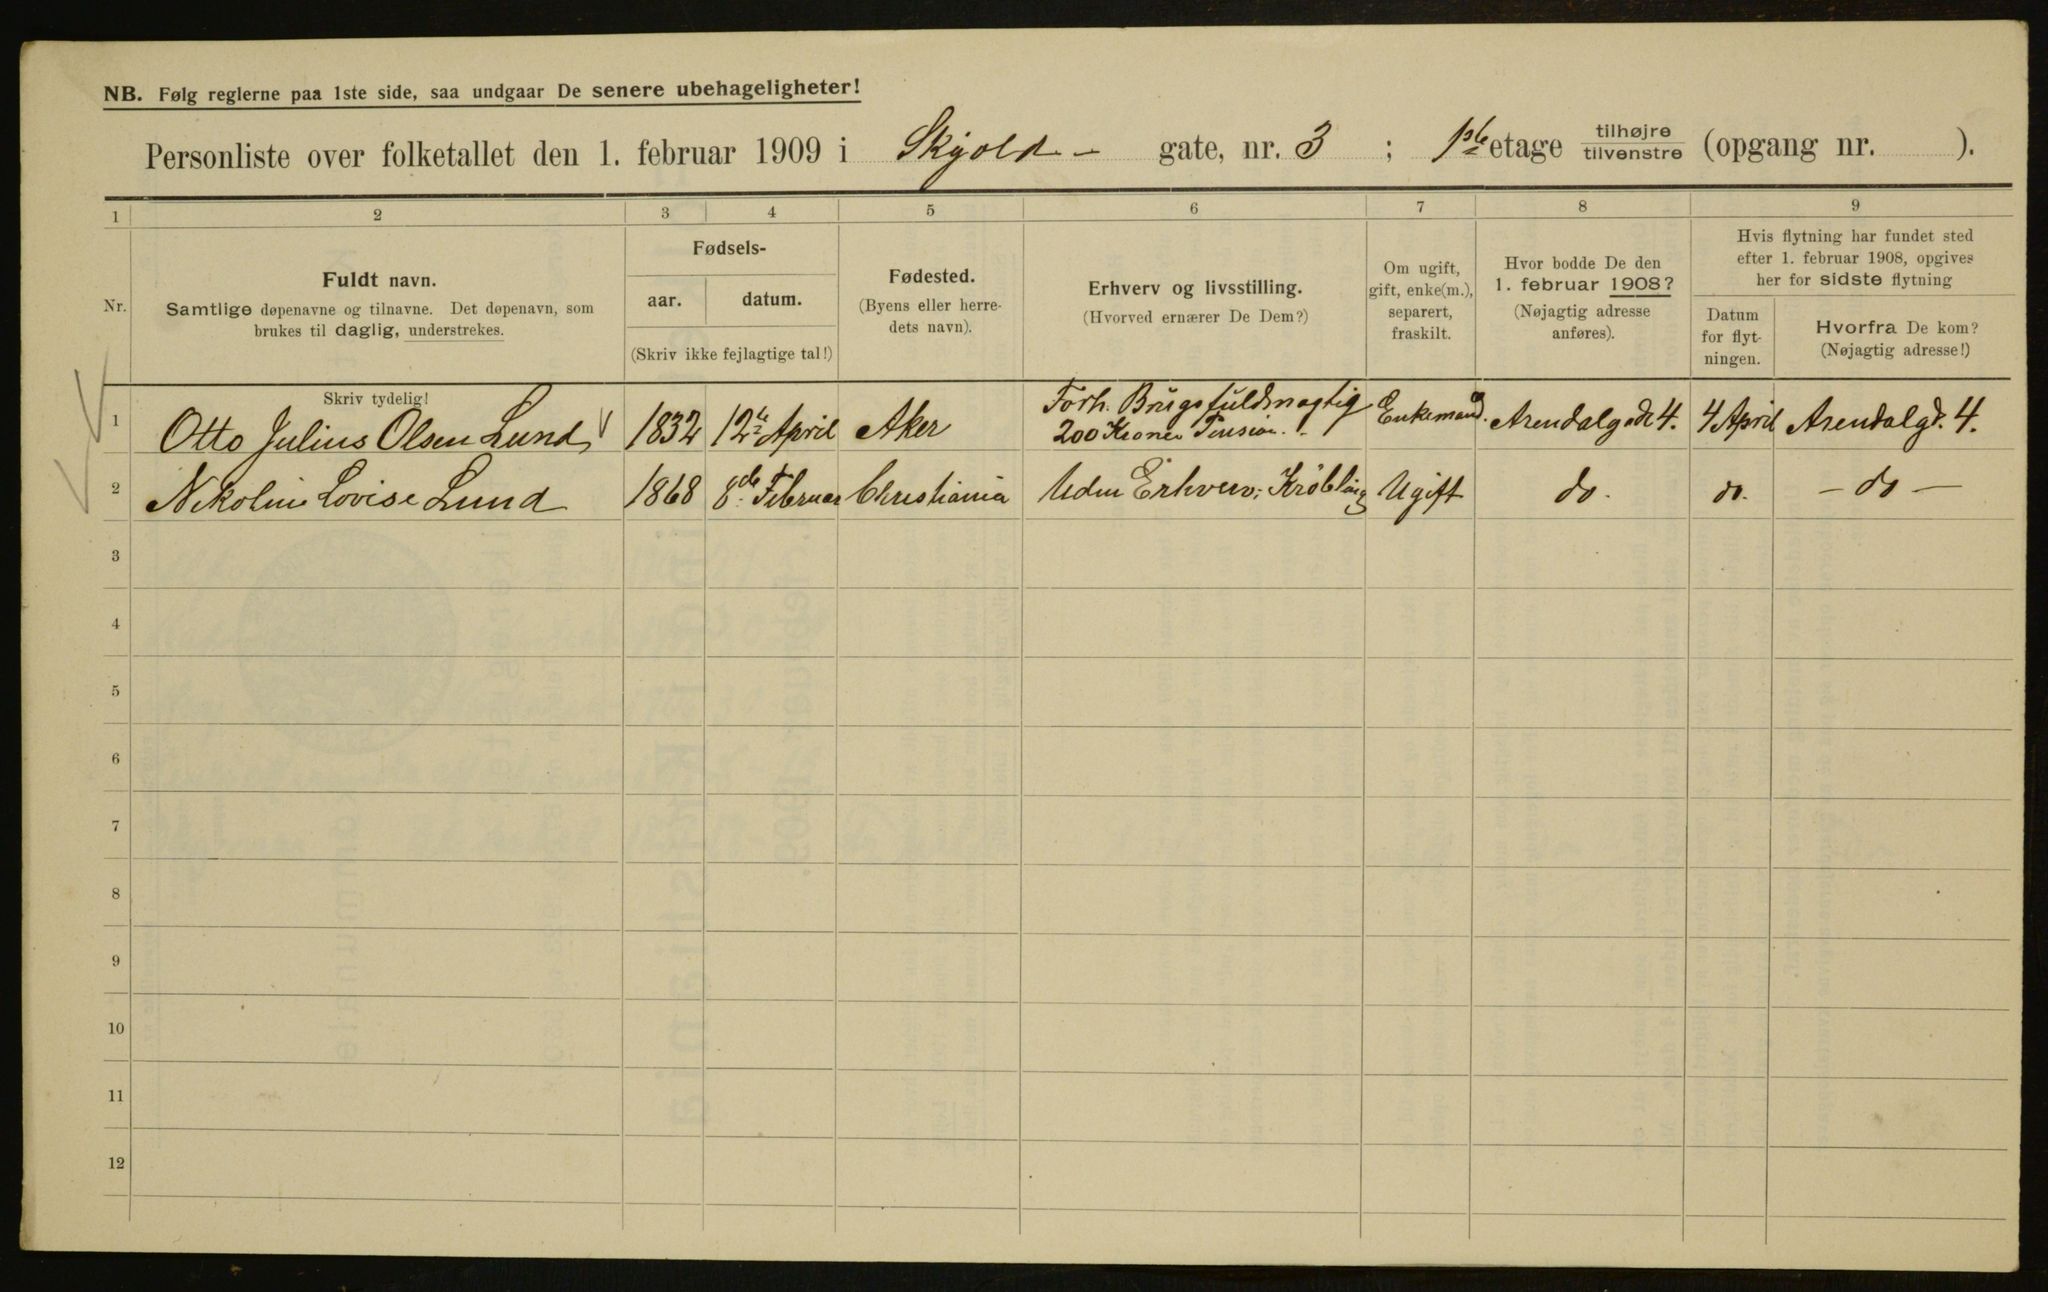 NB. Følg reglerne paa 1ste side, saa undgaar De senere ubehageligheter!
Personliste over folketallet den 1. februar 1909 i Skjold - gate, nr. 3 ; 1ste etage tilhøjre tilvenstre (opgang nr. ).
1 2 3 4 5 6 7 8 9
Nr.
Fuldt navn.
Samtlige døpenavne og tilnavne. Det døpenavn, som
brukes til daglig, understrekes.
Fødsels-
aar. datum.
(Skriv ikke fejlagtige tal!)
Fødested.
(Byens eller herre-
dets navn).
Erhverv og livsstilling.
(Hvorved ernærer De Dem?)
Om ugift,
gift, enke(m.),
separert,
fraskilt.
Hvor bodde De den
1. februar 1908?
(Nøjagtig adresse
anføres).
Hvis flytning har fundet sted
efter 1. februar 1908, opgives
her for sidste flytning
Datum
for flyt-
ningen.
Hvorfra De kom?
(Nøjagtig adresse!)
Skriv tydelig!
1 Otto Julius Olsen Lund 1832 12te April Aker Forh. Brugsfuldmægtig 200 Kroner Pension Enkemand. Arendalgade 4. 4 April Arendalgd. 4.
2 Nikoline Lovise Lund 1868 8de Februar Christiania Uden Erhverv; Krøbling Ugift do. do. - do -
3
4
5
6
7
8
9
10
11
12